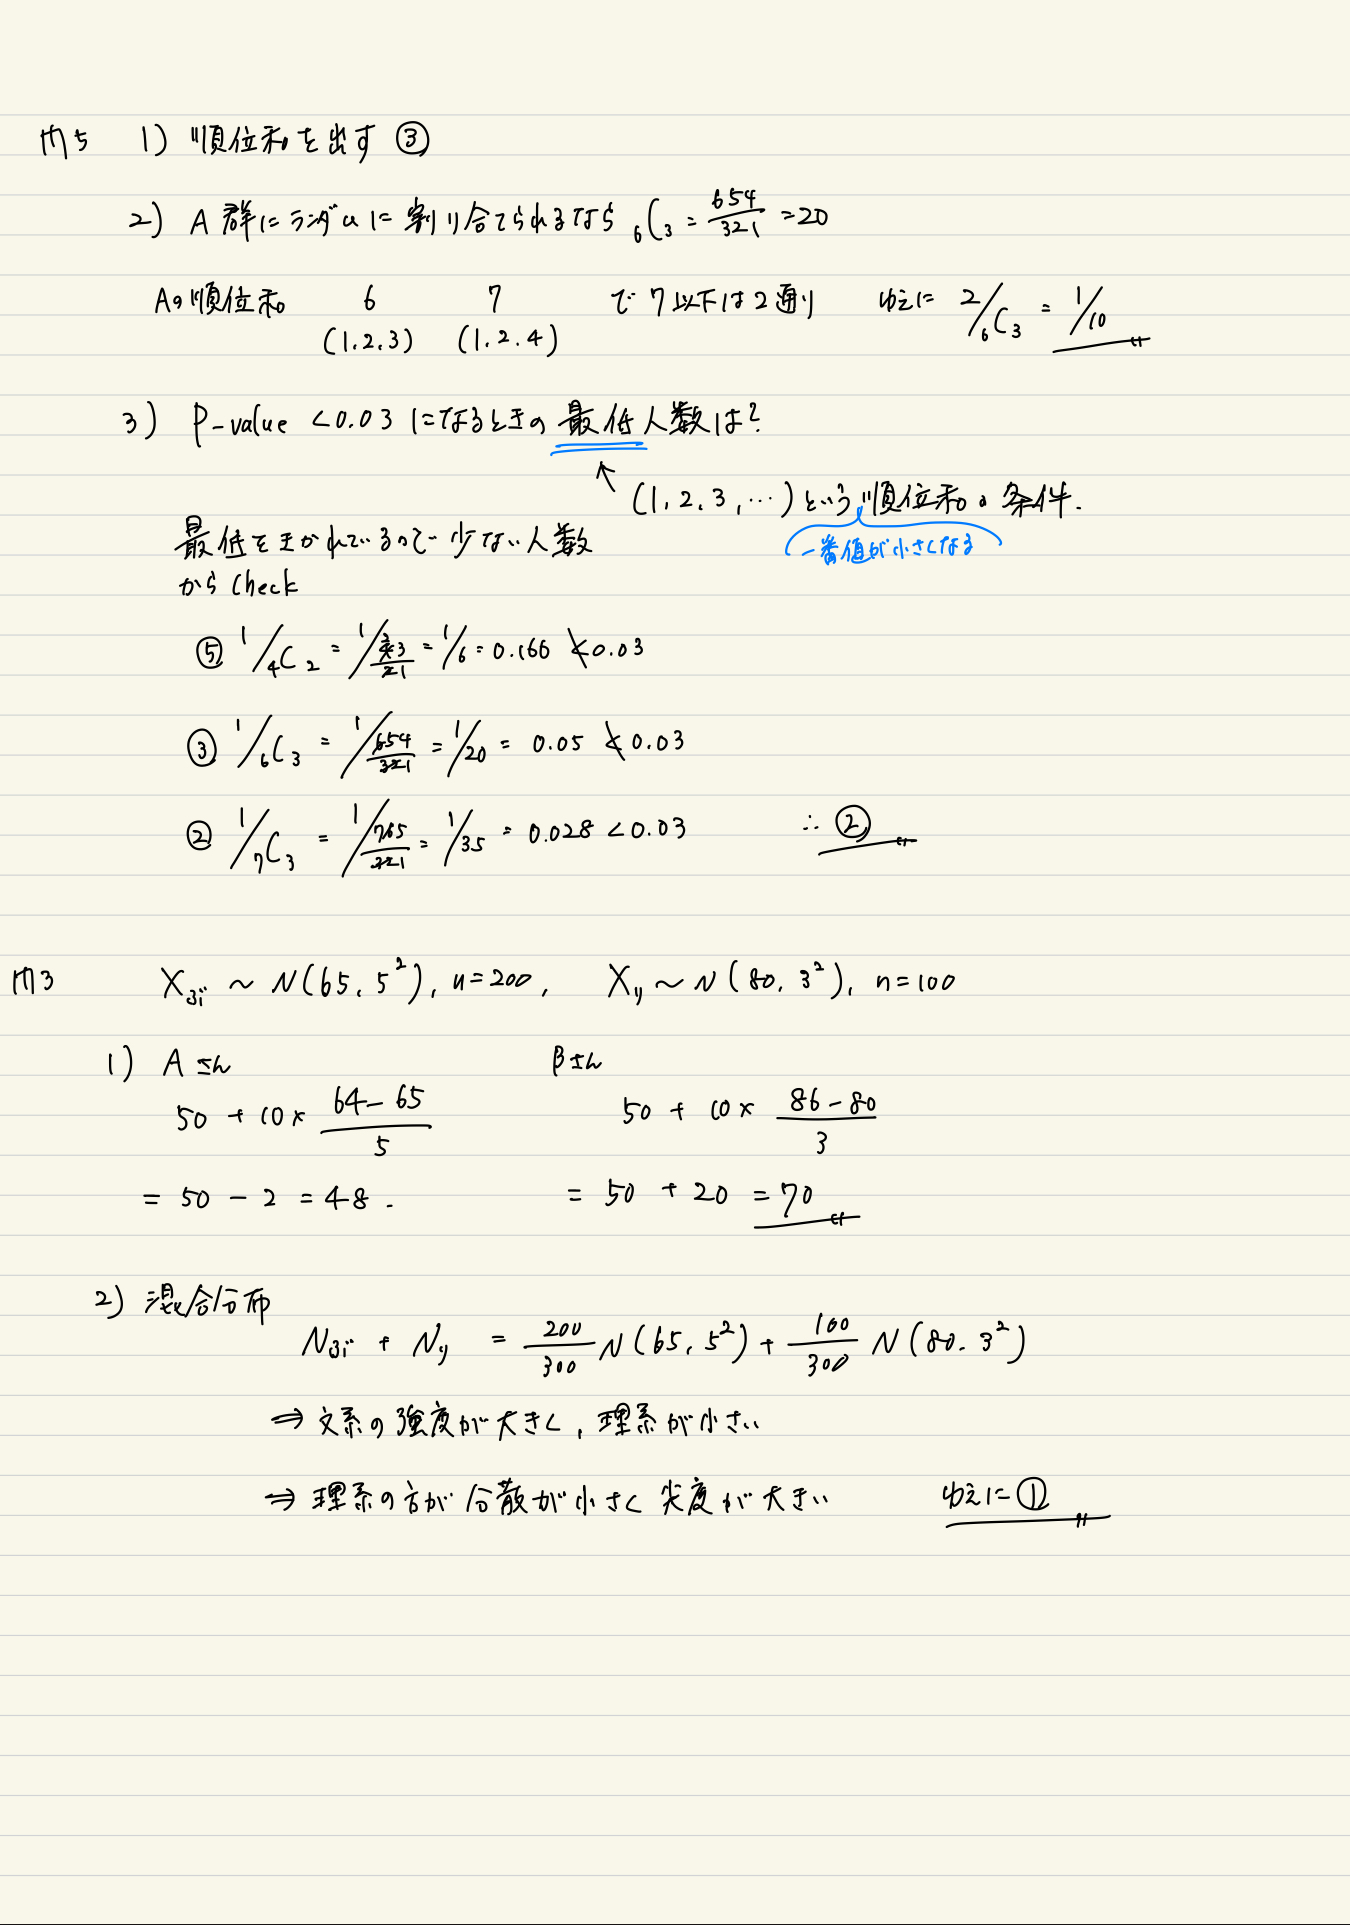 問5 1) 順位和を出す ③
2) A 群にランダムに割り合てられるなら ₆C₃ = 654/321 = 20
Aの順位和 6 7 で 7以下は2通り ゆえに 2/₆C₃ = 1/10
(1.2.3) (1.2.4)
3) P-value <0.03 になるときの最低人数は?
↑ (1,2,3,…) という順位和の条件.
最低をきかれているので少ない人数 一番値が小さくなる
から check
⑤ 1/₄C₂ = 1/(43/21) = 1/6 = 0.166 ≮0.03
③ 1/₆C₃ = 1/(654/321) = 1/20 = 0.05 ≮ 0.03
② 1/₇C₃ = 1/(765/321) = 1/35 = 0.028 < 0.03 ∴ ②
問3 X ~ N(65, 5²), n=200, X ~ N(80, 3²), n=100
1) A さん Bさん
50 + 10× (64-65)/5 50 + 10× (86-80)/3
= 50 - 2 = 48. = 50 + 20 = 70
2) 混合分布
N + N = 200/300 N(65, 5²) + 100/300 N(80. 3²)
⇒ 文系の強度が大きく, 理系が小さい
⇒ 理系の方が分散が小さく尖度が大きい ゆえに ①